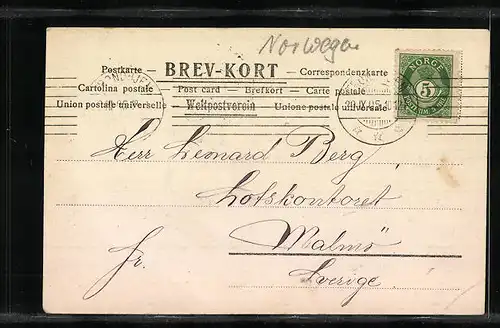 Norwegen
Postkarte — BREV-KORT — Correspondenzkarte
Cartolina postale — Post card — Brefkort — Carte postale
Union postale universelle — Weltpostverein — Unione postale universale
NORGE
5
Herr Lennard Berg,
Lotskontoret
Malmö
fr.
Sverige.